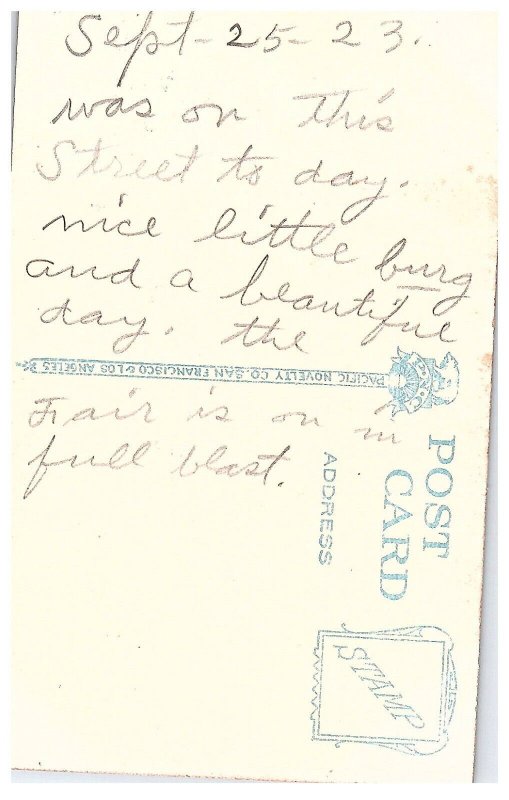 Sept - 25 - 23.
was on this
Street to day.
nice little burg
and a beautiful
day. the
PACIFIC NOVELTY CO. SAN FRANCISCO & LOS ANGELES
Fair is on in
full blast.
POST CARD
ADDRESS
STAMP